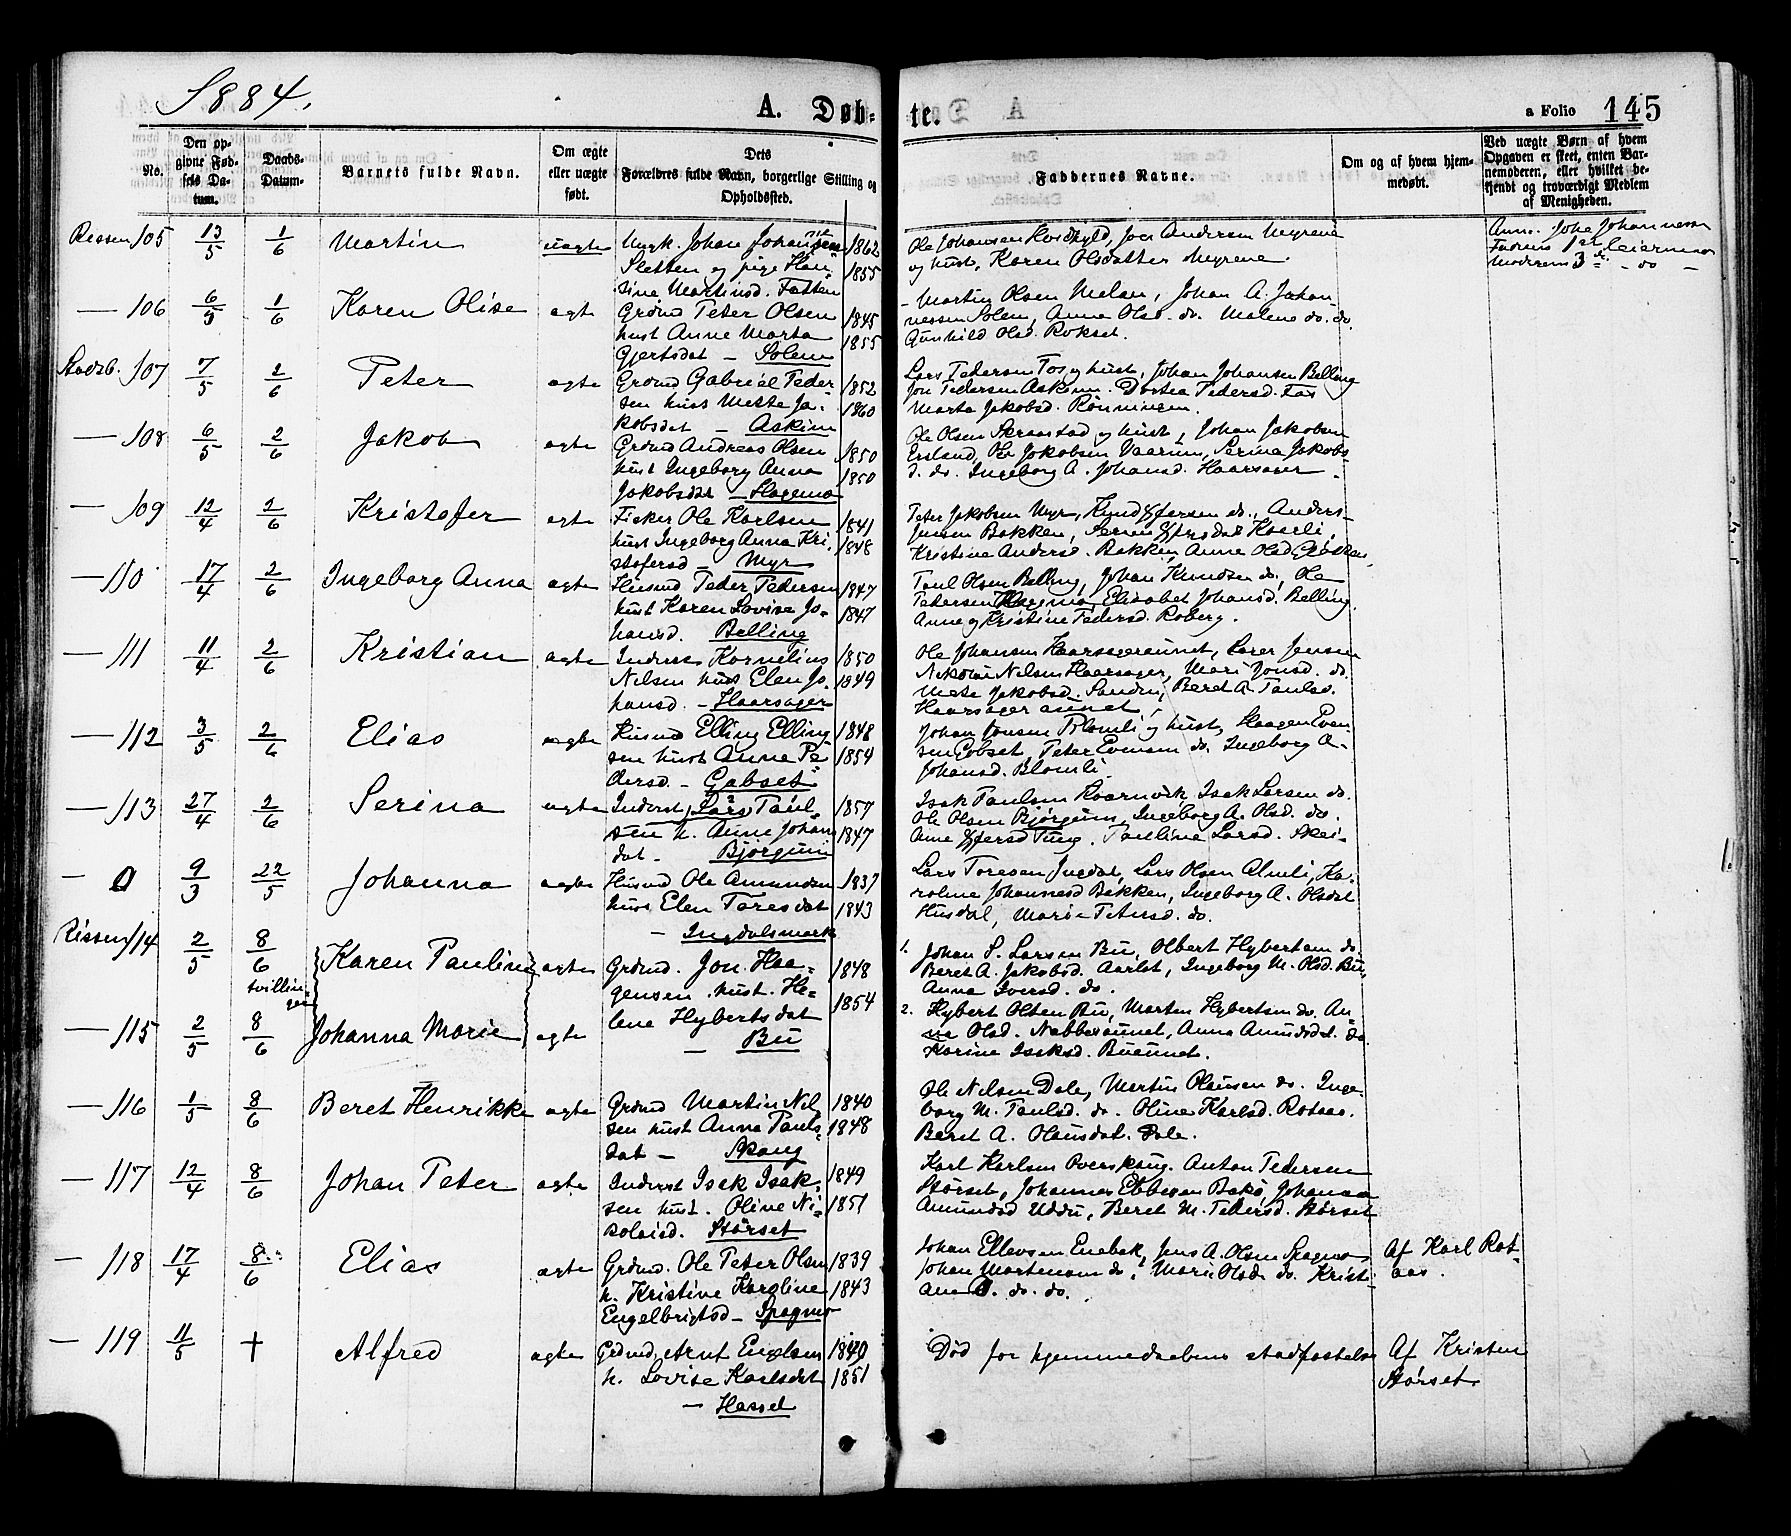 1884.
A. Døb-
te.
a Folio 145
No.
Den op-
givne Fød-
sels Da-
tum.
Daabs-
Datum.
Barnets fulde Navn.
Om ægte
eller uægte
født.
Dets
Forældres fulde Navn, borgerlige Stilling og
Opholdssted.
Faddernes Navne.
Om og af hvem hjem-
medøbt.
Ved uægte Børn af hvem
Opgaven er skeet, enten Bar-
nemoderen, eller hvilket be-
kjendt og troværdigt Medlem
af Menigheden.
Rissen 105 13/5 1/6 Martin uægte Ungk. Johan Johansen 1862
Sletten og pige Han- 1855
sine Martinsd. Fatten
Ole Johansen, Andersen Myrene
og hust, Karen Olsdatter Myrene.
— 106 6/5 1/6 Karen Olise ægte Grdmd Peter Olsen 1845
hust Anne Marta 1855
Gjertsdat — Solem
Martin Olsen Melan, Johan A. Johan-
nessen Solem, Anna Olsd. do. Malene do. do.
Gunhild Olsd. Rokset.
Stadsb. 107 7/5 2/6 Peter ægte Grdmd Gabriel Peder 1852
sen hust Mette Ja- 1860
kobsdat — Askim
Lars Pedersen Fos og hust, Johan Johansen Belling
Jon Pedersen Askim. Dortea Pedersd. Fos
Marta Jakobsd. Rønningen.
— 108 6/5 2/6 Jakob ægte Grdmd Andreas Olsen 1850
hust Ingeborg Anna 1850
Jakobsdat — Hagemo
Ole Olsen Skraastad og hust, Johan Jakobsen
Ersland, Ole Jakobsen Vaarum, Serina Jakobs-
d. do. Ingeborg A. Johansd. Haarsager.
— 109 12/4 2/6 Kristofer ægte Fisker Ole Karlsen 1841
hust Ingeborg Anna Kri- 1848
stofersd — Myr
Peter Jakobsen Myr, Anders
Jensen Bakken,
Kristine Andersd. Bakken, Anne Olsd
— 110 17/4 2/6 Ingeborg Anna ægte Husmd Peder Pedersen 1847
hust Karen Lovise Jo- 1847
hansd. Belling
Paul Olsen Belling, Johan Knudsen do, Ole
Pedersen Hagemo, Elisabet Johansd. Belling
Anne og Kristine Pedersd. Roberg.
— 111 11/4 2/6 Kristian ægte Inderst Kornelius 1850
Nilsen hust Elen Jo- 1849
hansd. — Haarsager
Ole Johansen Haarsageraunet, Jensen
Nikolai Nilsen Haarsager, Mari Jonsd. do
Mette Jakobsd. Sanden, Beret A. Paulsd.
Haarsageraunet.
— 112 3/5 2/6 Elias ægte Husmd Elling Elling 1848
sen hust Anne Pe- 1854
dersd. — Gabset
Johan Jonsen Blomli og hust, Haagen Even-
sen Gobset, Peter Evensen do, Ingeborg A-
Johansd. Blomli.
— 113 27/4 2/6 Serina ægte Inderst Lars Paul- 1857
sen h. Anne Johan 1847
dat — Bjørgum
Isak Paulsen Kvernvik, Isak Larsen do.
Ole Olsen Bjørgum, Ingeborg A. Olsd. do.
Paulina Larsd.
— 0 9/3 22/5 Johanna ægte Husmd Ole Amundsen 1837
hust Elen Toresdat 1843
— Ingdalsmark
Lars Toresen Ingdal, Lars Olsen Almli, Ka-
roline Johannesd Bakken, Ingeborg A. Olsdat
Husdal, Marie Petersd. do.
Rissen 114 2/5 8/6 Karen Pauline ægte Grdmd. Jon Haa- 1848
tvillin-
ger
gensen hust. He- 1854
lene Hybertsdat
— Bu
1. Johan S. Larsen Bu, Olbert Hybertsen do.
Beret A. Jakobsd. Aarlot, Ingeborg M. Olsd. Bu,
Anna Iversd. do.
— 115 2/5 8/6 Johanna Marie ægte
2. Hybert Olsen Bu, Morten Hybertsen do. An-
na Olsd. Nebbesaunet, Anna Amundsdat. do
Karine Isaksd. Buaunet.
— 116 1/5 8/6 Beret Henrikke ægte Grdmd Martin Nil 1840
sen hust Anna Pauls- 1848
dat — Skaug
Ole Nilsen Dale, Martin Olausen do. Inge-
borg M. Paulsd. do. Oline Karlsd. Rotaas.
Beret A. Olausdat. Dale.
— 117 12/4 8/6 Johan Peter ægte Inderst Isak Isak- 1849
sen hust. Oline Ni- 1851
kolaisd. Størset
Karl Karlsen Overskaug. Anton Pedersen
Størset, Johannes Ebbesen Bakø, Johanna
Amundsd Uddu, Beret M. Pedersd. Størset
— 118 17/4 8/6 Elias ægte Grdmd. Ole Peter Olsen 1839
h. Kristine Karoline 1843
Engelbrigtsd — Spagmo
Johan Ellevsen Enebak, Jens A. Olsen Spagmo
Johan Mortensen do, Marie Olsd. do. Kristi-
ane O. do. do.
Af Karl Rot-
aas.
— 119 11/5 + Alfred ægte Grdmd. Arnt 1840
h. Lovise Karlsdat 1851
— Hassel
Død før hjemmedaabens stadfæstelse
Af Kristen
Størset.